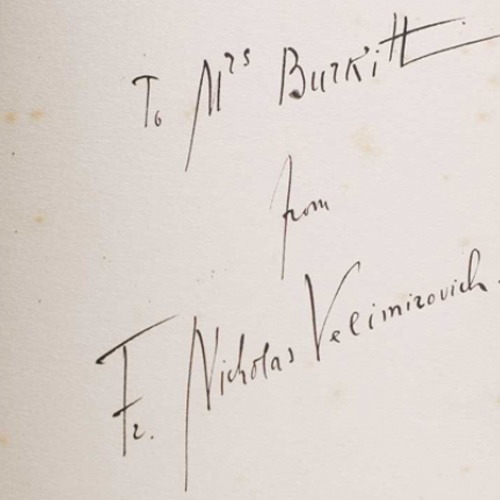 To Mrs Burkitt
from
Fr. Nicholas Velimirovich.